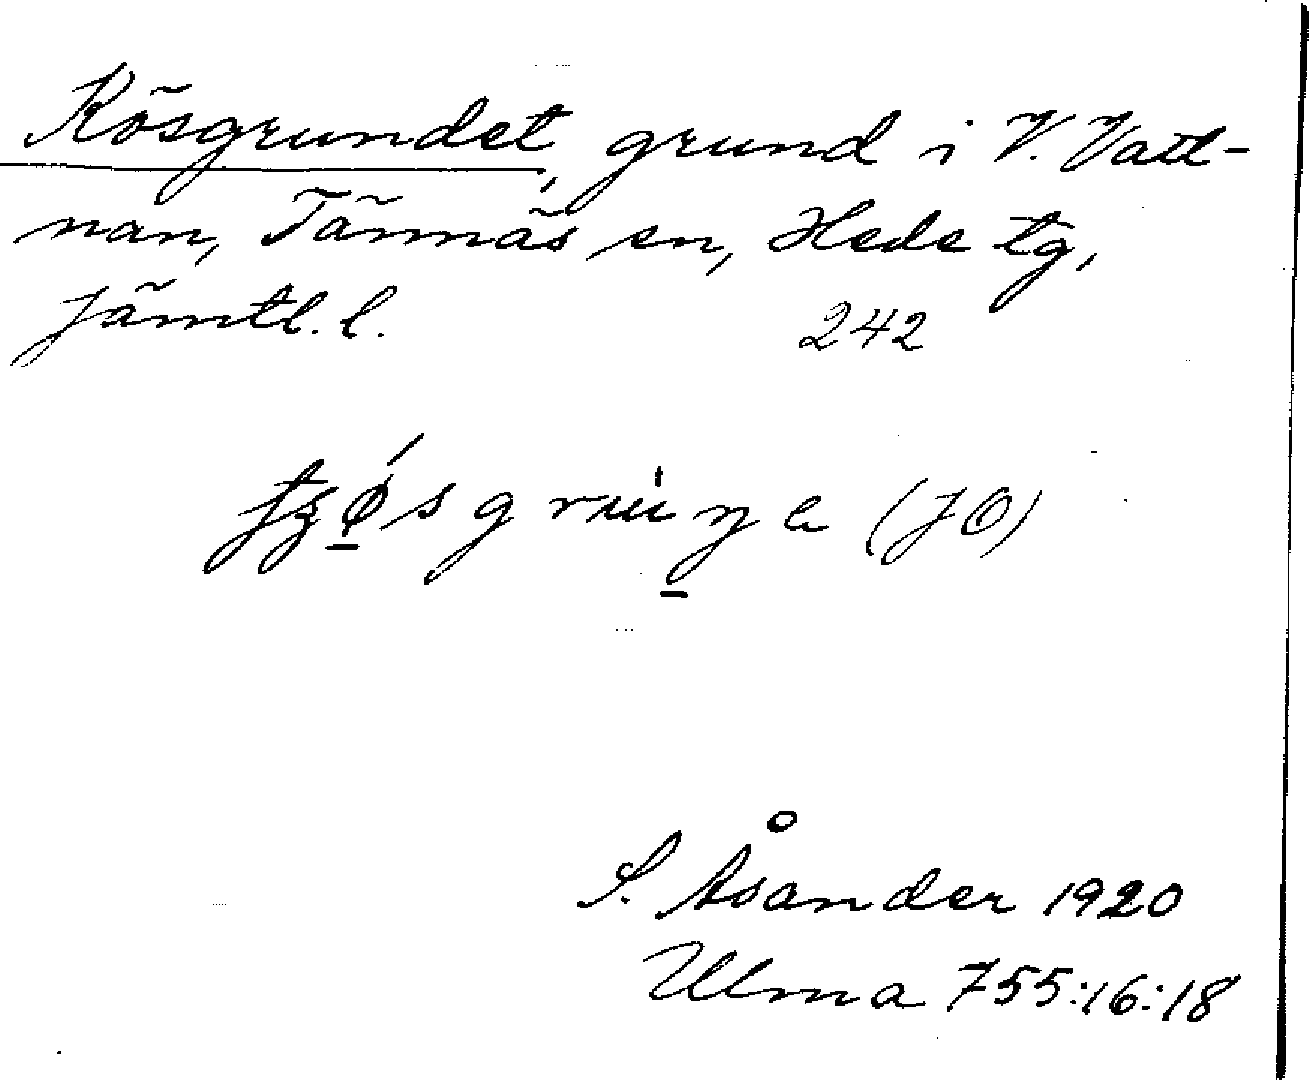 Kösgrundet, grund i V. Vatt-
nan, Tännäs sn, Hede tg,
Jämtl. l. 242
(JO)
S. Åsander 1920
Ulma 755:16:18